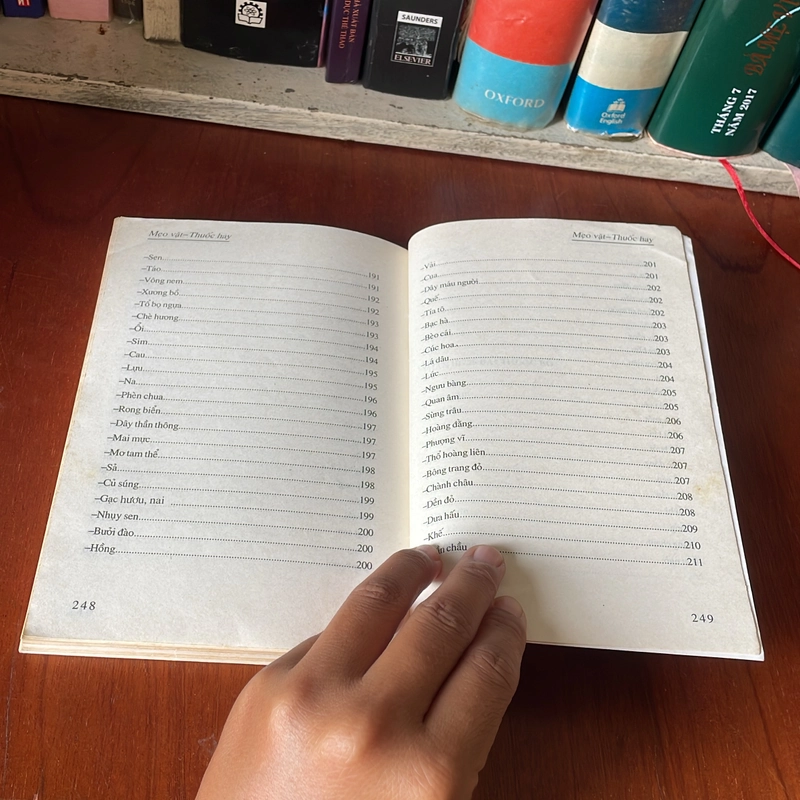 SAUNDERS
ELSEVIER
OXFORD
Oxford
English
THÁNG 7
NĂM 2017
Mẹo vặt–Thuốc hay
–Sen...191
–Táo...191
–Vông nem...192
–Xương bồ...192
–Tổ bọ ngựa...193
–Chè hương...193
–Ổi...194
–Sim...194
–Cau...195
–Lựu...195
–Na...196
–Phèn chua...196
–Rong biển...197
–Dây thần thông...197
–Mai mực...197
–Mơ tam thể...198
–Sả...198
–Củ súng...199
–Gạc hươu, nai...199
–Nhụy sen...200
–Bưởi đào...200
–Hồng...200
248
Mẹo vặt–Thuốc hay
–Vải...201
–Coa...201
–Dây máu người...202
–Quế...202
–Tía tô...202
–Bạc hà...203
–Bèo cái...203
–Cúc hoa...203
–Lá dâu...204
–Lức...204
–Ngưu bàng...205
–Quan âm...205
–Sừng trâu...206
–Hoàng đằng...206
–Phượng vĩ...207
–Thổ hoàng liên...207
–Bông trang đỏ...207
–Chành châu...208
–Dền đỏ...208
–Dưa hấu...209
–Khế...210
chấu...211
249